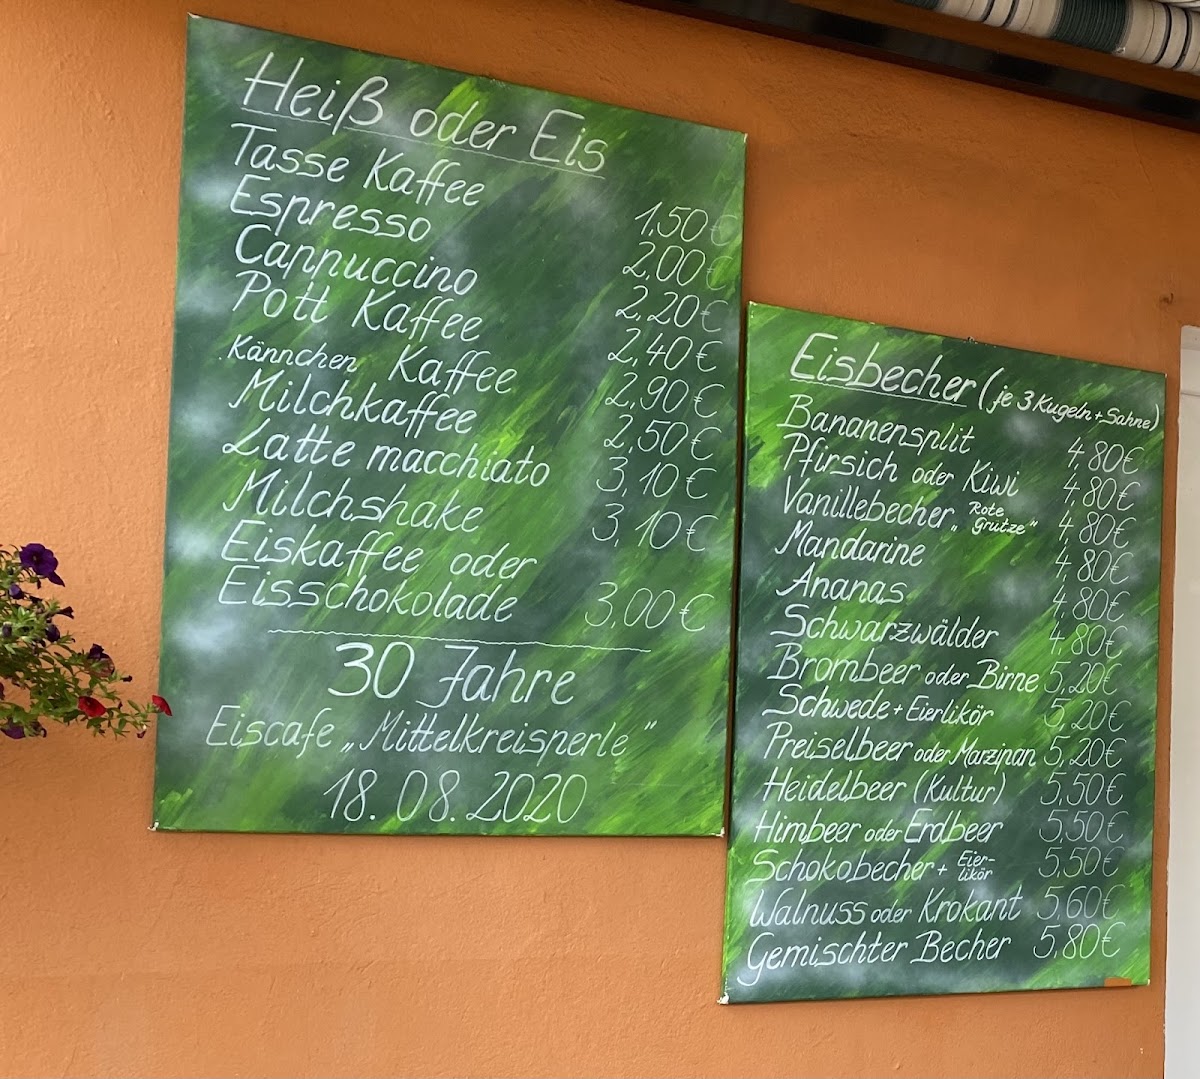 Heiß oder Eis
Tasse Kaffee 1,50€
Espresso 2,00€
Cappuccino 2,20€
Pott Kaffee 2,40€
Kännchen Kaffee 2,90€
Milchkaffee 2,50€
Latte macchiato 3,10€
Milchshake 3,10€
Eiskaffee oder
Eisschokolade 3,00€
30 Jahre
Eiscafe „Mittelkreisperle"
18.08.2020
Eisbecher (je 3 Kugeln + Sahne)
Bananensplit 4,80€
Pfirsich oder Kiwi 4,80€
Vanillebecher „Rote Grütze" 4,80€
Mandarine 4,80€
Ananas 4,80€
Schwarzwälder 4,80€
Brombeer oder Birne 5,20€
Schwede + Eierlikör 5,20€
Preiselbeer oder Marzipan 5,20€
Heidelbeer (Kultur) 5,50€
Himbeer oder Erdbeer 5,50€
Schokobecher + Eier-likör 5,50€
Walnuss oder Krokant 5,60€
Gemischter Becher 5,80€